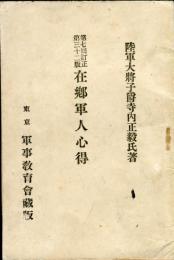 陸軍大將子爵寺内正毅氏著
第七回訂正
第三十二版
在鄉軍人心得
東京 軍事敎育會藏版